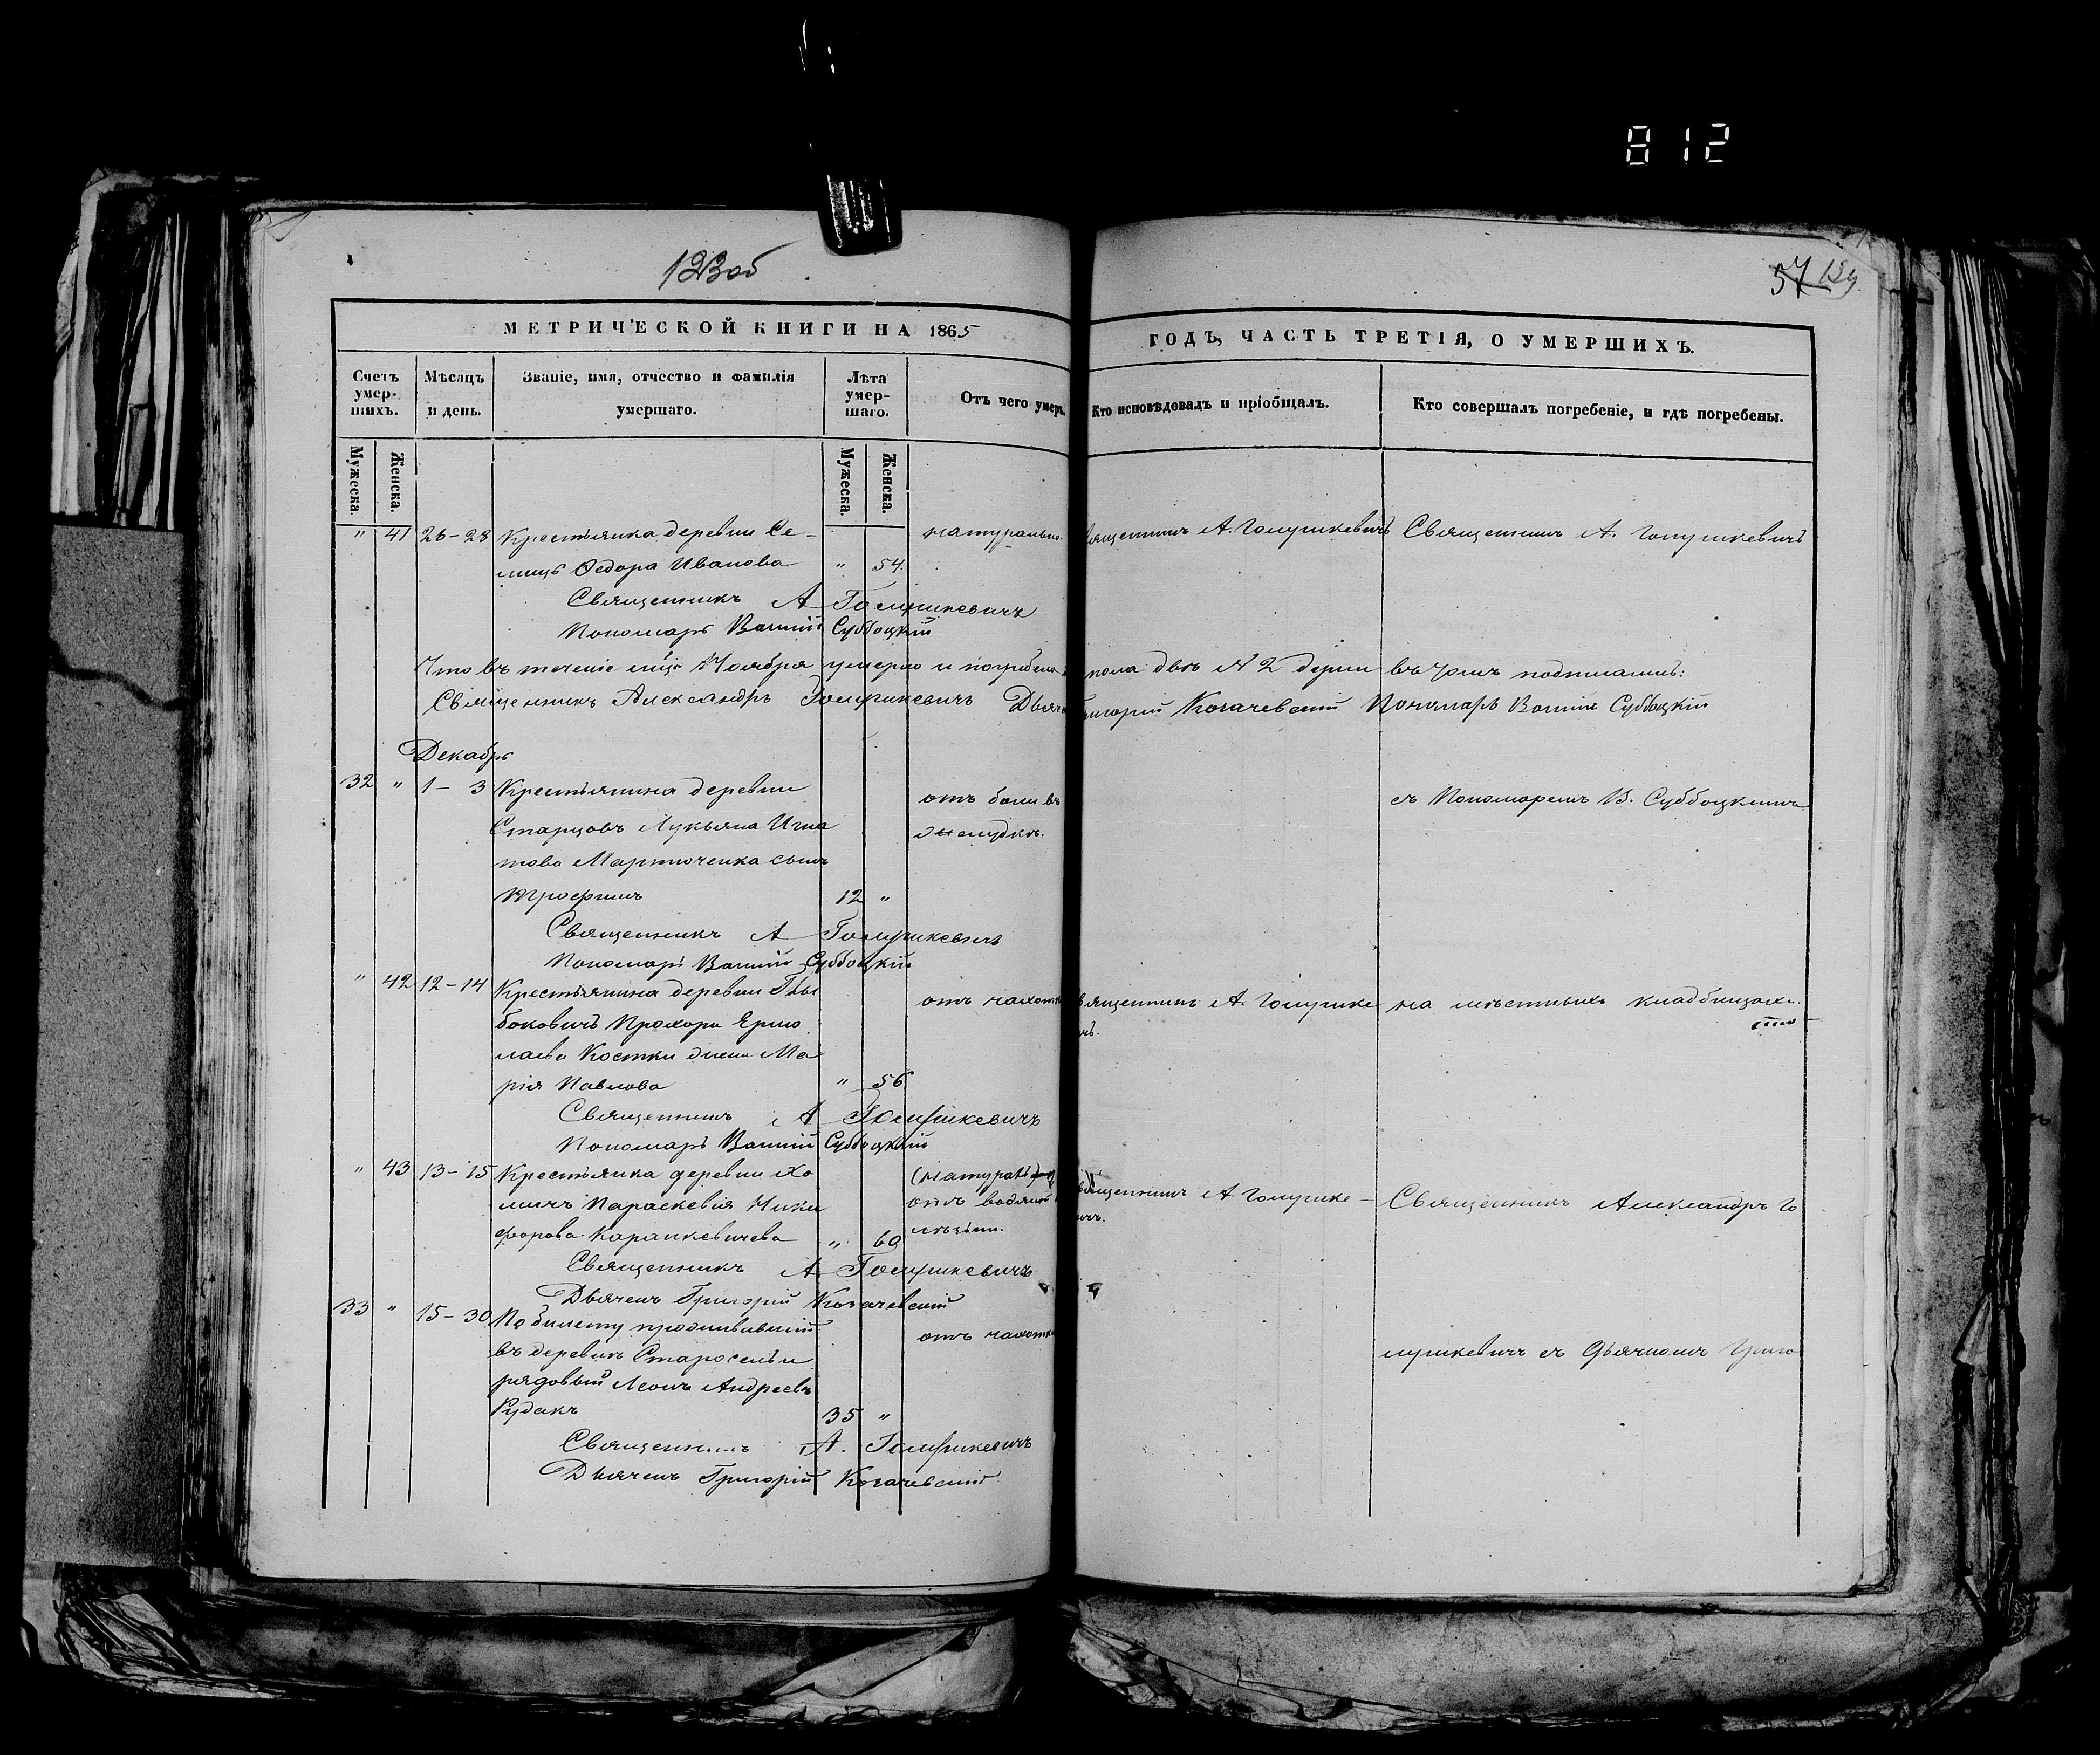 812
123об
57 124
МЕТРИЧЕСКОЙ КНИГИ НА 1865
ГОДЪ, ЧАСТЬ ТРЕТІЯ, О УМЕРШИХЪ.
Счетъ умер-шихъ.
Мѣсяцъ и день.
Званіе, имя, отчество и фамилія умершаго.
Лѣта умер-шаго.
Отъ чего умеръ.
Кто исповѣдовалъ и пріобщалъ.
Кто совершалъ погребеніе, и гдѣ погребены.
Мужеска.
Женска.
Мужеска.
Женска.
" 41 26-28 Крестьянка деревни Се-
лищъ Ѳедора Иванова " 54.
натурально.
Священникъ А. Голушкевичъ
Священникъ А. Голушкевичъ
Священникъ А Голушкевичъ
Пономаръ Василій Суббоцкій
Что въ теченіе мца Ноября умерло и погребено пола двѣ № 2 въ томъ подписались:
Священникъ Александръ Голушкевичъ Григорій Когачевскій Пономаръ Василій Суббоцкій
Декабрь
32 " 1-3 Крестьянина деревни
Старцовъ Лукьяна Игна
това Мартюченка сынъ
Трофимъ 12 "
отъ боли въ
желудкѣ.
съ Пономаремъ В. Суббоцкимъ
Священникъ А Голушкевичъ
Пономаръ Василій Суббоцкій
" 42 12-14 Крестьянина деревни Глы
боковичъ Прохора Ермо
лаева Костки жена Ма
рія Павлова " 56
отъ чахотки
Священникъ А. Голушке
вичъ.
на мѣстныхъ кладбищахъ.
Священникъ А Голушкевичъ
Пономаръ Василій Суббоцкій
" 43 13-15 Крестьянка деревни Хо
мичъ Параскевія Ники
форова Каранкевичева " 60
отъ водяной
Священникъ А Голушке-
вичъ.
Священникъ Александръ Го
Священникъ А Голушкевичъ
Дьячекъ Григорій Когачевскій
33 " 15-30 По билету проживавшій
въ деревнѣ Старосельи
рядовый Леонъ Андреевъ
Рудакъ 35 "
отъ чахотки
лушкевичъ съ Дьячкомъ Григо
Священникъ А. Голушкевичъ
Дьячекъ Григорій Когачевскій